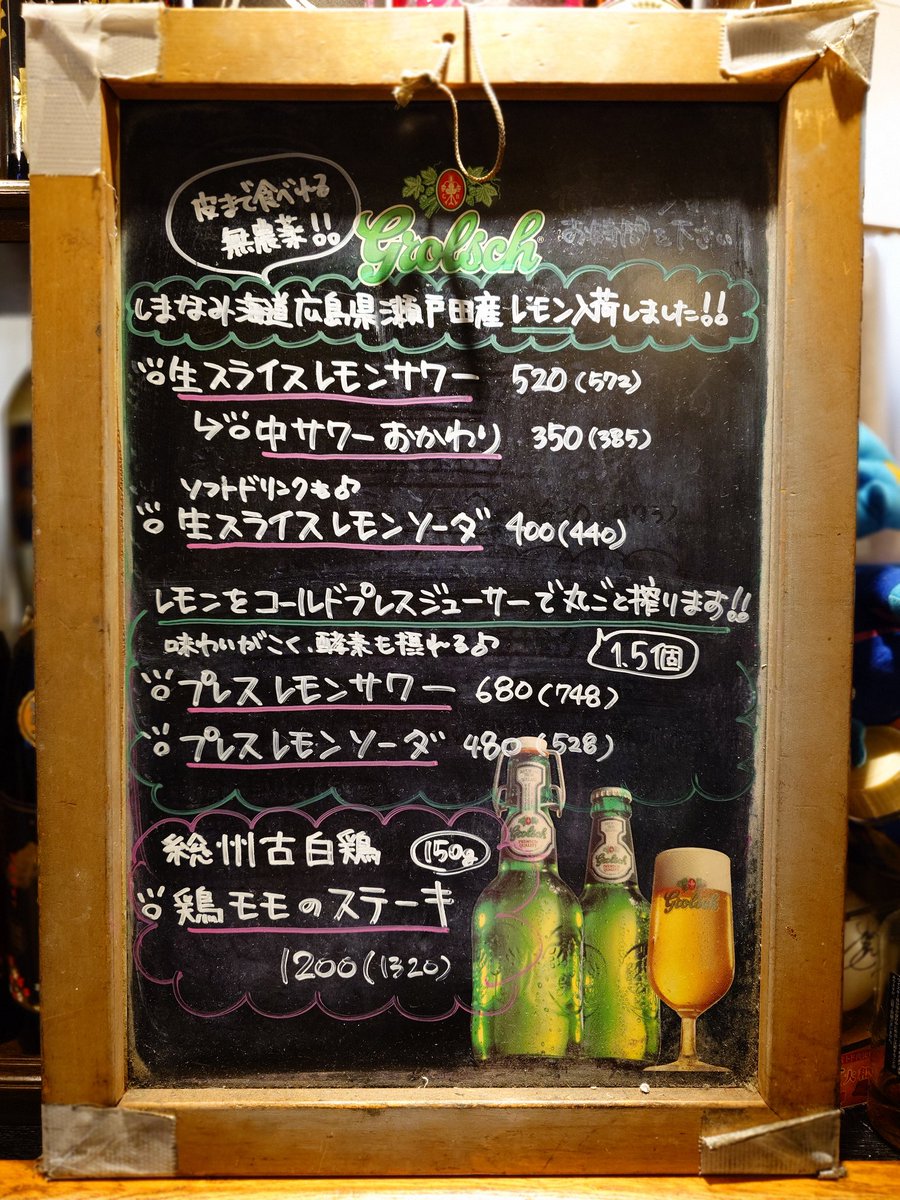 皮まで食べれる
無農薬!!
Grolsch
しまなみ海道広島県瀬戸田産レモン入荷しました!!
生スライスレモンサワー 520(572)
中サワーおかわり 350(385)
ソフトドリンクも♪
生スライスレモンソーダ 400(440)
レモンをコールドプレスジューサーで丸ごと搾ります!!
味わいがこく、酵素も摂れる♪
1.5個
プレスレモンサワー 680(748)
プレスレモンソーダ 480(528)
総州古白鶏 150g
鶏モモのステーキ
1200(1320)
Grolsch
Grolsch
Grolsch